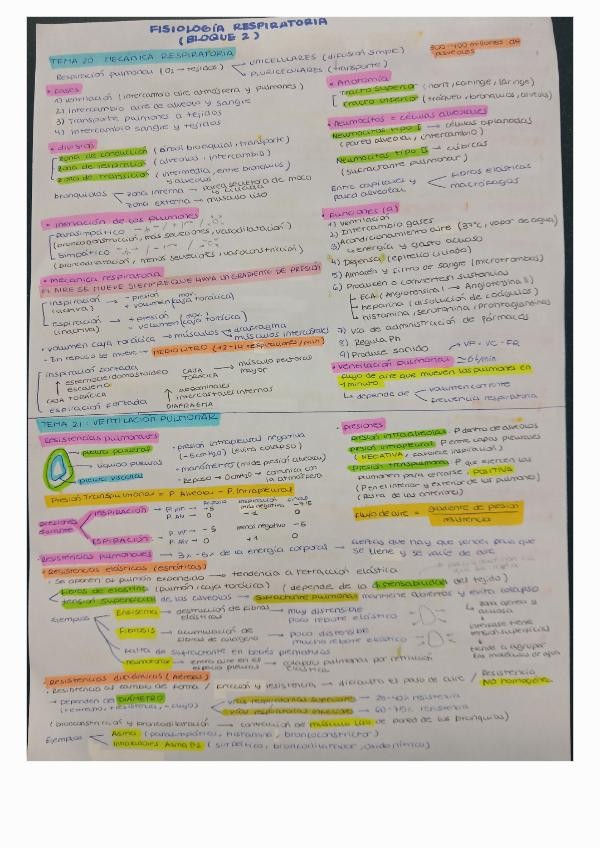 FISIOLOGÍA RESPIRATORIA
(BLOQUE 2)
TEMA 20: MECANICA RESPIRATORIA
300-400 millones de alveolos
Respiración pulmonar (O2 → tejidos)
UNICELULARES (difusión simple)
PLURICELULARES (transporte)
• Fases
1) Ventilación (intercambio aire atmósfera y pulmones)
2) Intercambio aire de alveolo y sangre
3) Transporte pulmones a tejidos
4) Intercambio sangre y tejidos
• división
Zona de conducción (árbol bronquial, transporte)
Zona de respiración (alveolos, intercambio)
Zona de transición (intermedia, entre bronquios y alveolos)
bronquiolos
zona interna → pared secretora de moco
y ciliada
zona externa → músculo liso
• Inervación de los pulmones
Parasimpático
(broncoconstricción, más secreciones, vasodilatación)
Simpático
(broncodilatación, menos secreciones, vasoconstricción)
• mecanica respiratoria
EL AIRE SE MUEVE SIEMPRE QUE HAYA UN GRADIENTE DE PRESIÓN
inspiración → - presión
(activa) + volumen (caja torácica)
espiración → + presión
(inactiva) - volumen (caja torácica)
• volumen caja torácica → músculos
diafragma
músculos intercostales
- En reposo se mueve → MEDIO LITRO (12-15 respiraciones/min)
inspiración forzada
↑ esternocleidomastoideo
escaleno
CAJA TORÁCICA
CAJA TORÁCICA
→ músculo pectoral mayor
espiración forzada
↑ abdominales
intercostales internos
DIAFRAGMA
• Anatomía
Tracto superior (nariz, faringe, laringe)
Tracto inferior (tráquea, bronquios, alveolos)
• Neumocitos = células alveolares
Neumocitos tipo I → células aplanadas
(pared alveolar, intercambio)
Neumocitos tipo II → cúbicas
(surfactante pulmonar)
Entre capilares y pared alveolar
Fibras elásticas
macrófagos
• Funciones (9)
1) Ventilación
2) Intercambio gases
3) Acondicionamiento aire (37ºC, vapor de agua)
↳ energía y gasto acuoso
4) Defensa (epitelio ciliado)
5) Almacén y filtro de sangre (microtrombos)
6) Producen o convierten sustancias
ECA (Angiotensina I → Angiotensina II)
Heparina (disolución de coágulos)
histamina, serotonina, prostaglandinas
7) Vía de administración de fármacos
8) Regula Ph
9) Produce sonido
• Ventilación pulmonar → VP = VC · FR
≃ 6l/min
Flujo de aire que mueven los pulmones en 1 minuto
↳ depende de
volumen corriente
frecuencia respiratoria
TEMA 21: VENTILACIÓN PULMONAR
Resistencias pulmonares
pleura parietal
líquido pleural
pleura visceral
• presión intrapleural negativa
(-5cmH2O) (evita colapso)
• manómetro (mide presión alveolar)
- Reposo → 0cmH2O → comunica con la atmósfera
• presiones
presión intraalveolar: P dentro de alveolos
presión intrapleural: P entre capas pleurales
(NEGATIVA, favorece inspiración)
presión transpulmonar: P que ejercen los
pulmones para cerrarse, POSITIVA
(P en el interior y exterior de los pulmones)
(Resta de las anteriores)
Presión Transpulmonar = P Alveolar - P. Intrapleural
presiones durante
INSPIRACIÓN
ESPIRACIÓN
Flujo de aire = gradiente de presión / resistencia
• Resistencias pulmonares → 3% - 5% de la energía corporal → fuerzas que hay que vencer para que
se llene y se vacíe de aire
• Resistencias elásticas (estáticas)
- Se oponen al pulmón expandido → tendencia a retracción elástica
Fibras de elastina (pulmón, caja torácica) (depende de la distensibilidad del tejido)
tensión superficial de los alveolos → Surfactante pulmonar mantiene abiertos y evita colapso
Ejemplos
Enfisema → destrucción de fibras elásticas → muy distensible
poco rebote elástico
Fibrosis → acumulación de fibras de colágeno → poco distensible
mucho rebote elástico
Falta de surfactante en bebés prematuros
neumotórax → entra aire en el espacio pleural → colapso pulmonar por retracción elástica
↳ interfase tiene tensión superficial
↳ tiende a agrupar las moléculas de agua
• Resistencias dinámicas (Aéreas)
- Resistencia al cambio de forma / fricción y resistencia → dificulta el paso de aire / Resistencia
NO homogénea
→ Dependen del DIÁMETRO
Vías respiratorias superiores
Vías respiratorias inferiores
(broncoconstricción y broncodilatación → contracción de músculo liso de pared de los bronquios)
Ejemplos
Asma (parasimpático, histamina, broncoconstrictor)
Inhaladores Asma β2 (simpático, broncodilatador, óxido nítrico)